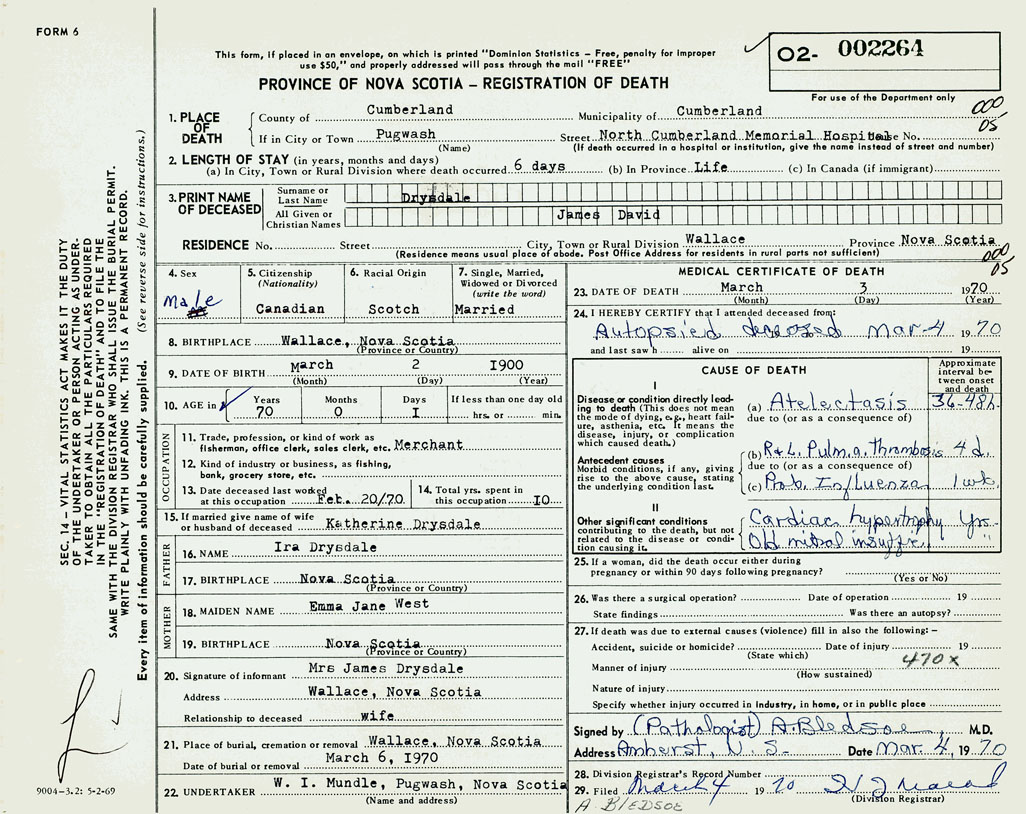 FORM 6
This form, if placed in an envelope, on which is printed "Dominion Statistics – Free, penalty for improper
use $50," and properly addressed will pass through the mail "FREE"
PROVINCE OF NOVA SCOTIA – REGISTRATION OF DEATH
02- 002264
For use of the Department only
000
05
1. PLACE OF DEATH
County of Cumberland Municipality of Cumberland
If in City or Town Pugwash Street North Cumberland Memorial Hospital No.
(Name) (If death occurred in a hospital or institution, give the name instead of street and number)
2. LENGTH OF STAY (in years, months and days)
(a) In City, Town or Rural Division where death occurred 6 days (b) In Province Life (c) In Canada (if immigrant)
3. PRINT NAME OF DECEASED
Surname or Last Name Drysdale
All Given or Christian Names James David
RESIDENCE No. Street City, Town or Rural Division Wallace Province Nova Scotia
(Residence means usual place of abode. Post Office Address for residents in rural parts not sufficient)
000
05
4. Sex
Male
5. Citizenship
(Nationality)
Canadian
6. Racial Origin
Scotch
7. Single, Married,
Widowed or Divorced
(write the word)
Married
8. BIRTHPLACE Wallace, Nova Scotia
(Province or Country)
9. DATE OF BIRTH March 2 1900
(Month) (Day) (Year)
10. AGE in Years Months Days If less than one day old
70 0 I hrs. or min.
OCCUPATION
11. Trade, profession, or kind of work as
fisherman, office clerk, sales clerk, etc. Merchant
12. Kind of industry or business, as fishing,
bank, grocery store, etc.
13. Date deceased last worked
at this occupation Feb. 20/70
14. Total yrs. spent in
this occupation IO
15. If married give name of wife
or husband of deceased Katherine Drysdale
FATHER
16. NAME Ira Drysdale
17. BIRTHPLACE Nova Scotia
(Province or Country)
MOTHER
18. MAIDEN NAME Emma Jane West
19. BIRTHPLACE Nova Scotia
(Province or Country)
20. Signature of informant Mrs James Drysdale
Address Wallace, Nova Scotia
Relationship to deceased wife
21. Place of burial, cremation or removal Wallace, Nova Scotia
Date of burial or removal March 6, I970
22. UNDERTAKER W. I. Mundle, Pugwash, Nova Scotia
(Name and address)
MEDICAL CERTIFICATE OF DEATH
23. DATE OF DEATH March 3 1970
(Month) (Day) (Year)
24. I HEREBY CERTIFY that I attended deceased from:
Autopsied deceased Mar-4 1970
and last saw h alive on 19
CAUSE OF DEATH
Approximate interval between onset and death
I
Disease or condition directly leading to death (This does not mean the mode of dying, e.g., heart failure, asthenia, etc. It means the disease, injury, or complication which caused death.)
(a) Atelectasis 36-48h.
due to (or as a consequence of)
Antecedent causes
Morbid conditions, if any, giving rise to the above cause, stating the underlying condition last.
(b) R & L. Pulm. a. Thrombosis 4 d.
due to (or as a consequence of)
(c) Prob. Influenza 1 wk.
II
Other significant conditions
contributing to the death, but not related to the disease or condition causing it.
Cardiac hypertrophy Yrs.
Old mitral insuffic. "
25. If a woman, did the death occur either during
pregnancy or within 90 days following pregnancy?
(Yes or No)
26. Was there a surgical operation? Date of operation 19
State findings Was there an autopsy?
27. If death was due to external causes (violence) fill in also the following: –
Accident, suicide or homicide? Date of injury 19
(State which) 470x
Manner of injury
(How sustained)
Nature of injury
Specify whether injury occurred in industry, in home, or in public place
Signed by (Pathologist) A. Bledsoe, M.D.
Address Amherst, N. S. Date Mar. 4, 1970
28. Division Registrar's Record Number
29. Filed March 4 1970
(Division Registrar)
A. BLEDSOE
SEC. 14 – VITAL STATISTICS ACT MAKES IT THE DUTY
OF THE UNDERTAKER OR PERSON ACTING AS UNDER-
TAKER TO OBTAIN ALL THE PARTICULARS REQUIRED
IN THE "REGISTRATION OF DEATH" AND TO FILE THE
SAME WITH THE DIVISION REGISTRAR WHO SHALL ISSUE THE BURIAL PERMIT.
WRITE PLAINLY WITH UNFADING INK. THIS IS A PERMANENT RECORD.
Every item of information should be carefully supplied. (See reverse side for instructions.)
9004-3.2: 5-2-69